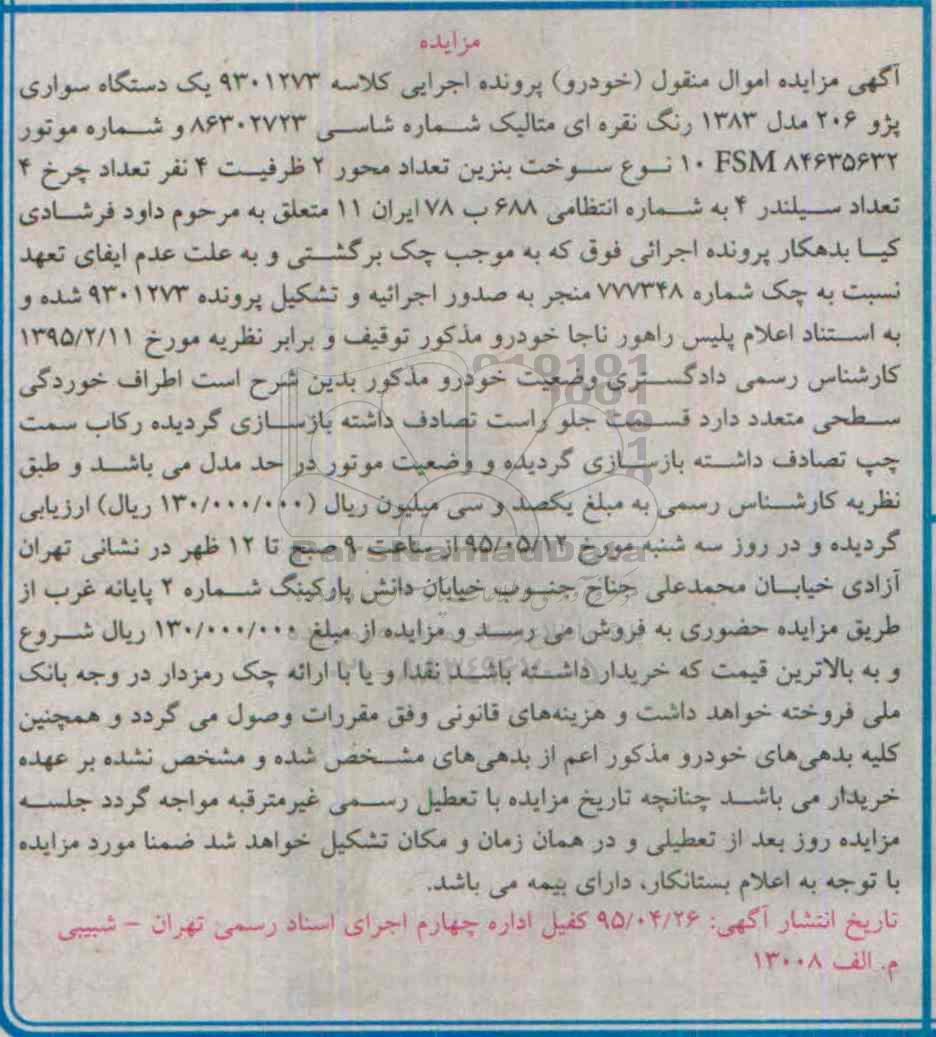 مزایده
آگهی مزایده اموال منقول (خودرو) پرونده اجرایی کلاسه ۹۳۰۱۲۷۳ یک دستگاه سواری
پژو ۲۰۶ مدل ۱۳۸۳ رنگ نقره ای متالیک شماره شاسی ۸۶۳۰۲۷۲۳ و شماره موتور
۱۰ FSM ۸۴۶۳۵۶۳۲ نوع سوخت بنزین تعداد محور ۲ ظرفیت ۴ نفر تعداد چرخ ۴
تعداد سیلندر ۴ به شماره انتظامی ۶۸۸ ب ۷۸ ایران ۱۱ متعلق به مرحوم داود فرشادی
کیا بدهکار پرونده اجرائی فوق که به موجب چک برگشتی و به علت عدم ایفای تعهد
نسبت به چک شماره ۷۷۷۳۴۸ منجر به صدور اجرائیه و تشکیل پرونده ۹۳۰۱۲۷۳ شده و
به استناد اعلام پلیس راهور ناجا خودرو مذکور توقیف و برابر نظریه مورخ ۱۳۹۵/۲/۱۱
کارشناس رسمی دادگستری وضعیت خودرو مذکور بدین شرح است اطراف خوردگی
سطحی متعدد دارد قسمت جلو راست تصادف داشته بازسازی گردیده رکاب سمت
چپ تصادف داشته بازسازی گردیده و وضعیت موتور در حد مدل می باشد و طبق
نظریه کارشناس رسمی به مبلغ یکصد و سی میلیون ریال (۱۳۰/۰۰۰/۰۰۰ ریال) ارزیابی
گردیده و در روز سه شنبه مورخ ۹۵/۰۵/۱۲ از ساعت ۹ صبح تا ۱۲ ظهر در نشانی تهران
آزادی خیابان محمدعلی جناح جنوب خیابان دانش پارکینگ شماره ۲ پایانه غرب از
طریق مزایده حضوری به فروش می رسد و مزایده از مبلغ ۱۳۰/۰۰۰/۰۰۰ ریال شروع
و به بالاترین قیمت که خریدار داشته باشد نقدا و یا با ارائه چک رمزدار در وجه بانک
ملی فروخته خواهد داشت و هزینه‌های قانونی وفق مقررات وصول می گردد و همچنین
کلیه بدهی‌های خودرو مذکور اعم از بدهی‌های مشخص شده و مشخص نشده بر عهده
خریدار می باشد چنانچه تاریخ مزایده با تعطیل رسمی غیرمترقبه مواجه گردد جلسه
مزایده روز بعد از تعطیلی و در همان زمان و مکان تشکیل خواهد شد ضمنا مورد مزایده
با توجه به اعلام بستانکار، دارای بیمه می باشد.
تاریخ انتشار آگهی: ۹۵/۰۴/۲۶ کفیل اداره چهارم اجرای اسناد رسمی تهران - شبیبی
م. الف ۱۳۰۰۸
ParsNamadData